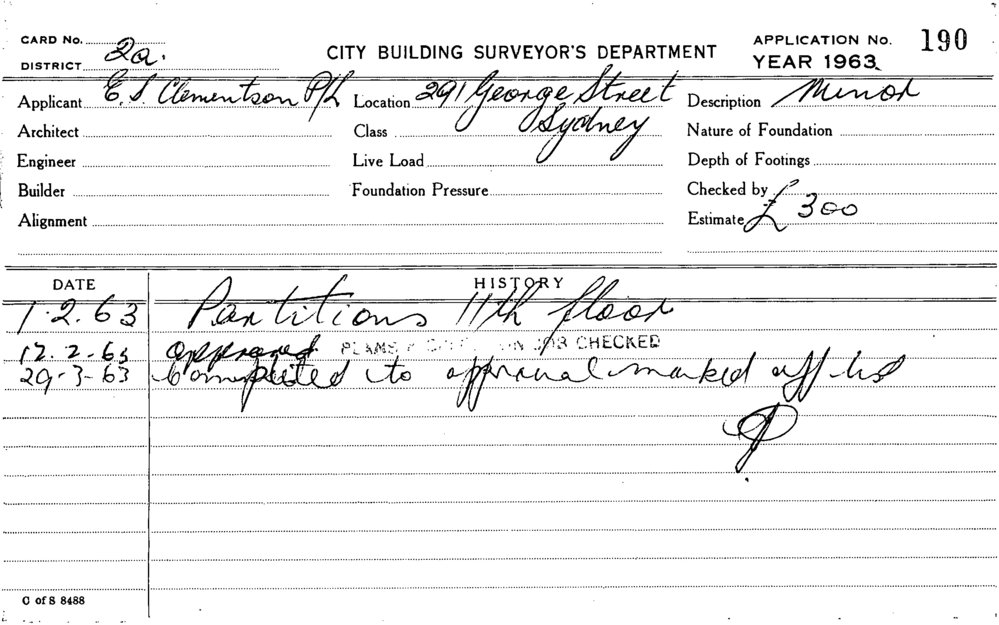 CARD No. 2a.
DISTRICT
CITY BUILDING SURVEYOR'S DEPARTMENT
APPLICATION No. 190
YEAR 1963
Applicant E. S. Clementson P/L
Location 291 George Street
Sydney
Description Minor
Architect
Class
Nature of Foundation
Engineer
Live Load
Depth of Footings
Builder
Foundation Pressure
Checked by
Alignment
Estimate £ 300
DATE
HISTORY
1.2.63 Partitions 11th floor
12.2.63 approved PLANS ON JOB CHECKED
29-3-63 Completed to approval marked off
C of S 8488